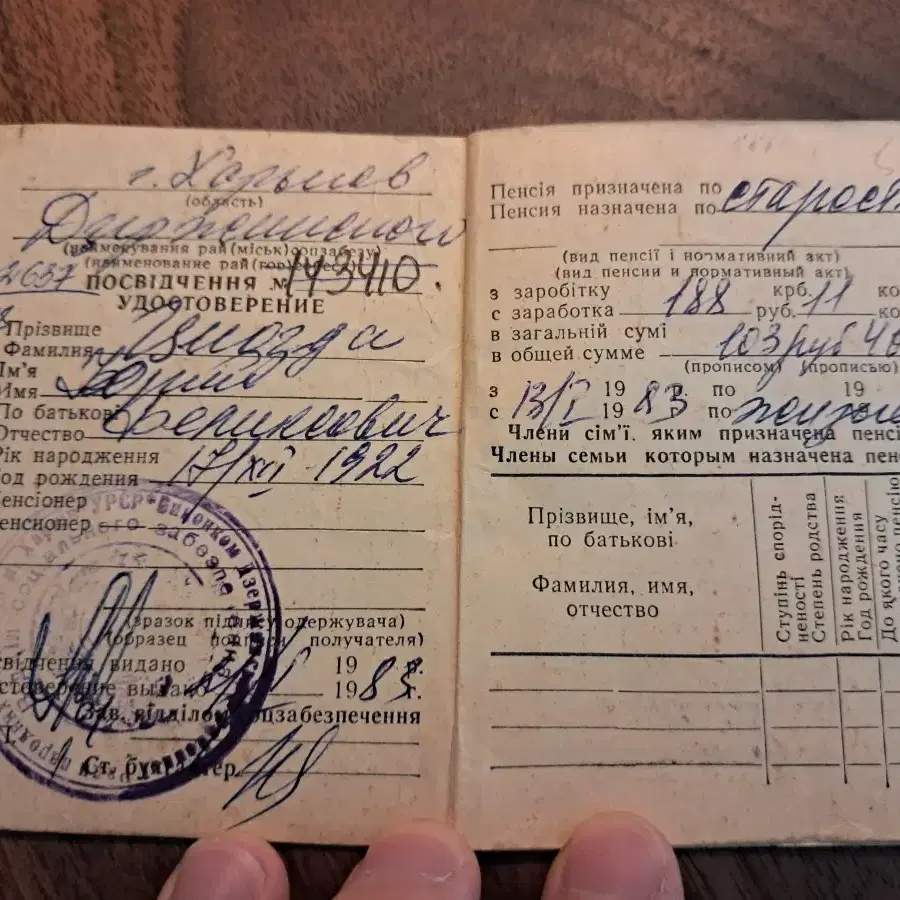 г. Харьков
(область)
Дзержинского
(найменування рай(міськ)соцзабезу)
(наименование рай(гор)
2637
ПОСВІДЧЕННЯ № 143410.
УДОСТОВЕРЕНИЕ
Прізвище
Фамилия
Ім'я
Имя Юрий
По батькові
Отчество Феликсович
Рік народження
Год рождения 17/XII 1922
Пенсіонер
Пенсионер
(зразок підпису одержувача)
(образец подписи получателя)
свідчення видано 19 р.
стоверение выдано 1983г.
Зав. відділом соцзабезпечення
Ст. бухгалтер
УРСР * Виконком Дзержинс
соціального забезпечення
Пенсія призначена по
Пенсия назначена по старост
(вид пенсії і нормативний акт)
(вид пенсии и нормативный акт)
з заробітку крб. ко
с заработка 188 руб. 11 ко
в загальній сумі
в общей сумме 103 руб 40
(прописом) (прописью)
з 19 р. по 19
с 13/I 1983 г. по
Члени сім'ї, яким призначена пенсі
Члены семьи которым назначена пен
Прізвище, ім'я,
по батькові
Фамилия, имя,
отчество
Ступінь спорід-
неності
Степень родства
Рік народження
Год рождения
До якого часу
пенсію